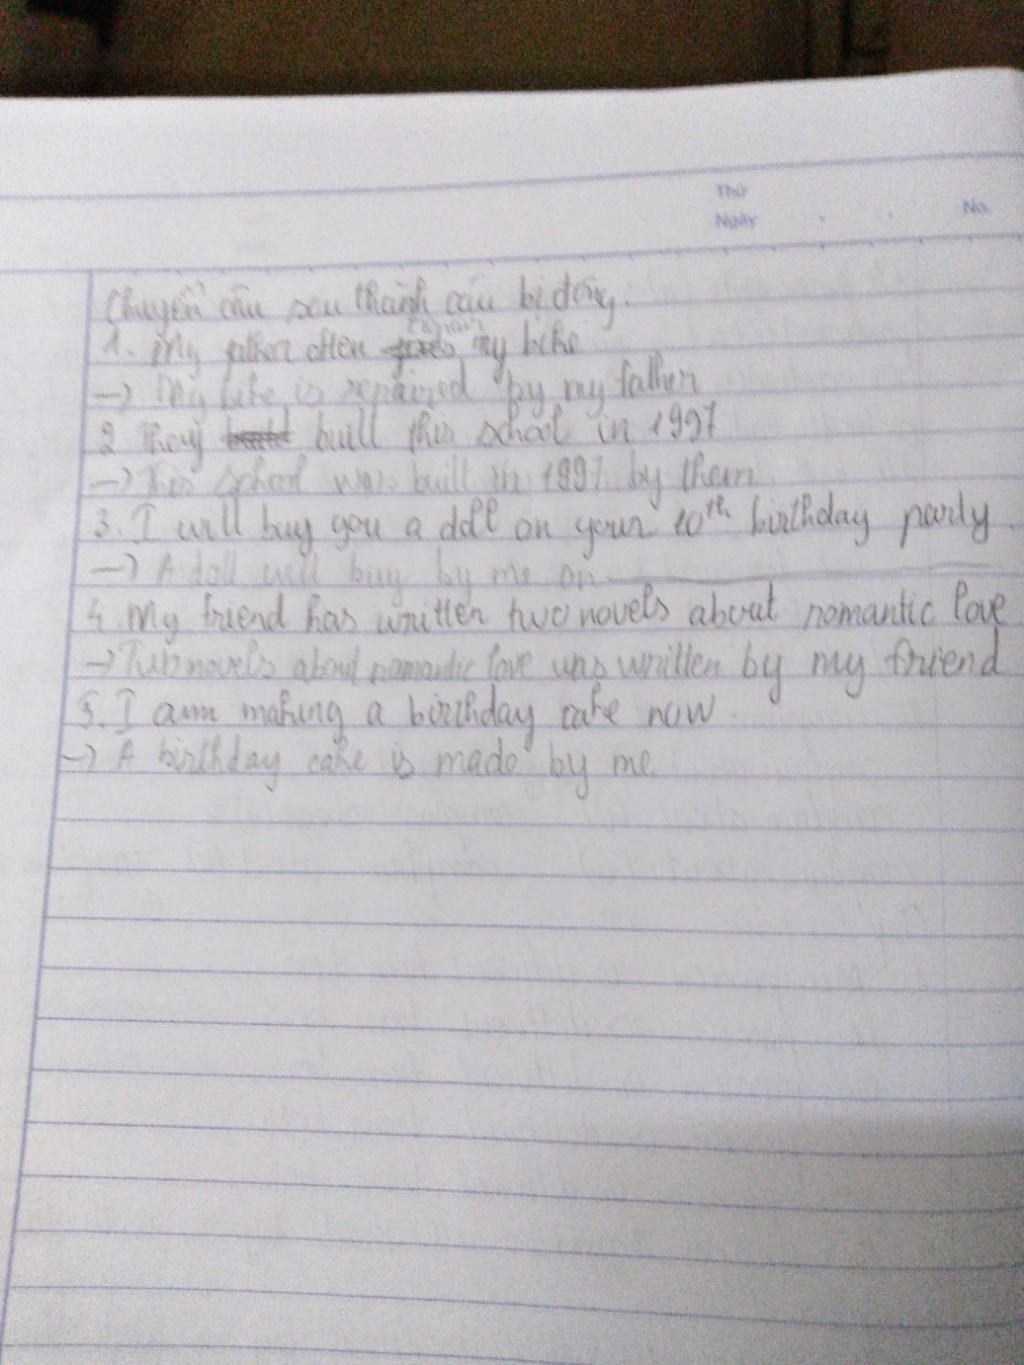 Thứ
Ngày No.
Chuyển câu sau thành câu bị động.
1. My father often repair my bike
-> My bike is repaired by my father
2 They built this school in 1997
-> This school was built in 1997 by them
3. I will buy you a doll on your 10th birthday party.
-> A doll will buy by me on
4. My friend has written two novels about romantic love
-> Two novels about romantic love was written by my friend
5. I am making a birthday cake now.
-> A birthday cake is made by me